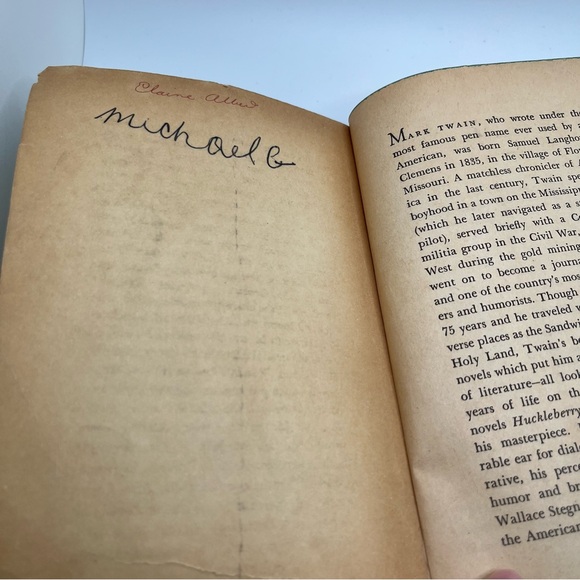 Elaine
Michael G
MARK TWAIN, who wrote under the
most famous pen name ever used by a
American, was born Samuel Langho
Clemens in 1835, in the village of Flo
Missouri. A matchless chronicler of A
ica in the last century, Twain spe
boyhood in a town on the Mississip
(which he later navigated as a s
pilot), served briefly with a C
militia group in the Civil War,
West during the gold mining
went on to become a journa
and one of the country's mos
ers and humorists. Though
75 years and he traveled w
verse places as the Sandwi
Holy Land, Twain's be
novels which put him a
of literature—all look
years of life on th
novels Huckleberry
his masterpiece.
rable ear for dialo
rative, his perce
humor and br
Wallace Stegn
the American